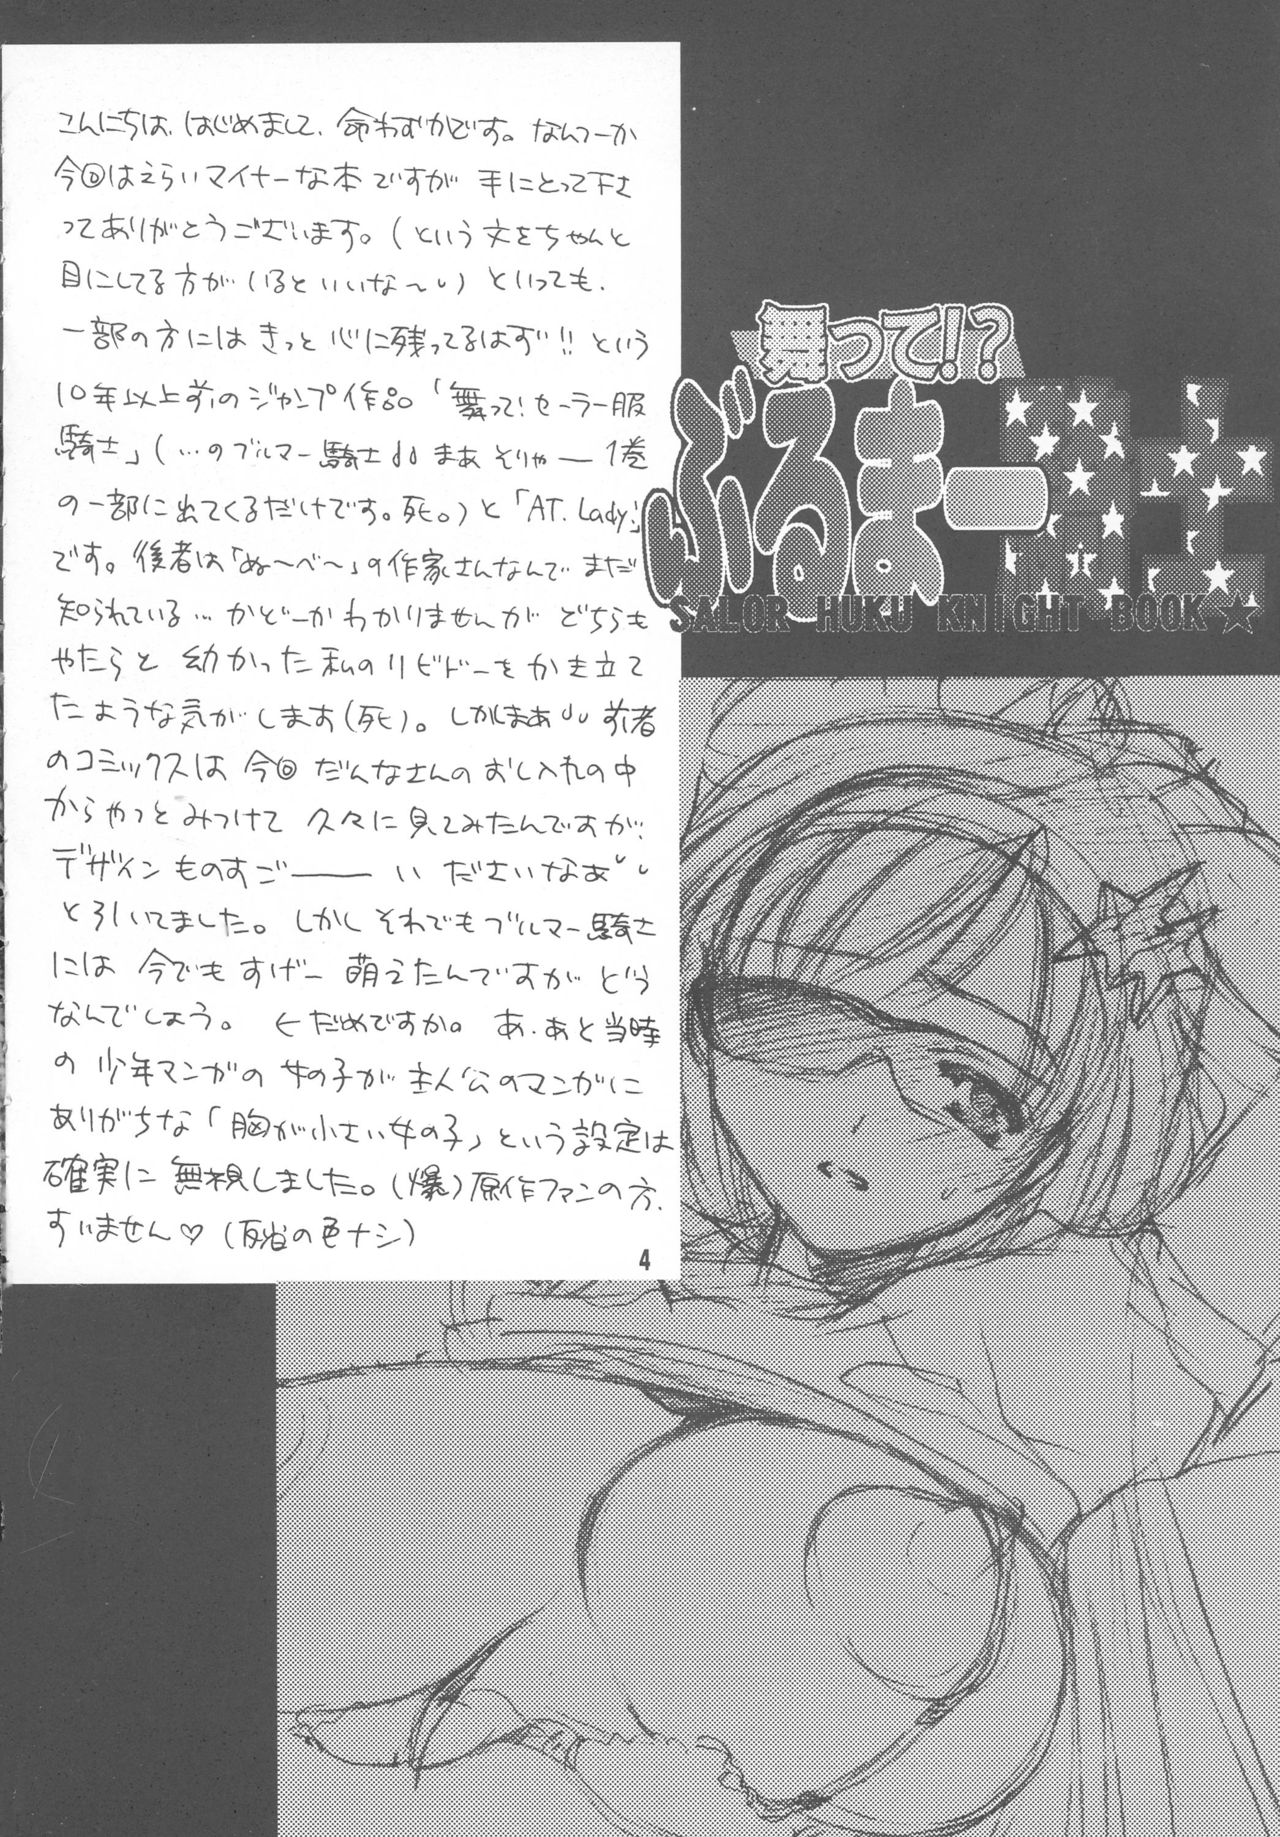 こんにちは、はじめまして、命わずかです。なんつーか
今回はえらいマイナーな本ですが 手にとって下さ
ってありがとうございます。(という文をちゃんと
目にしてる方が いるといいな〜)といっても、
一部の方には きっと 心に残ってるはず!! という
10年以上前のジャンプ作品「舞って!セーラー服
騎士」(…のブルマー騎士 まあ そりゃー 1巻
の一部に出てくるだけです。死。)と「AT. Lady!」
です。後者は「ぬ〜べ〜」の作家さんなんで まだ
知られている… かどーか わかりませんが どちらも
やたらと 幼かった 私のリビドーを かき立て
たような気がします(死)。しかしまあ 前者
のコミックスは 今回 だんなさんの おし入れの中
からやっと みつけて 久々に見てみたんですが、
デザイン ものすご――い ださいなあ
と引いてました。しかし それでもブルマー騎士
には 今でも すげー 萌えたんですが どう
なんでしょう。 ←だめですか。 あ、あと 当時
の 少年マンガの 女の子が 主人公のマンガに
ありがちな「胸が小さい女の子」という設定は
確実に 無視しました。(爆)原作ファンの方、
すいません♡(反省の色ナシ)
4
舞って!?
ぶるまー騎士
SALOR HUKU KNIGHT BOOK☆